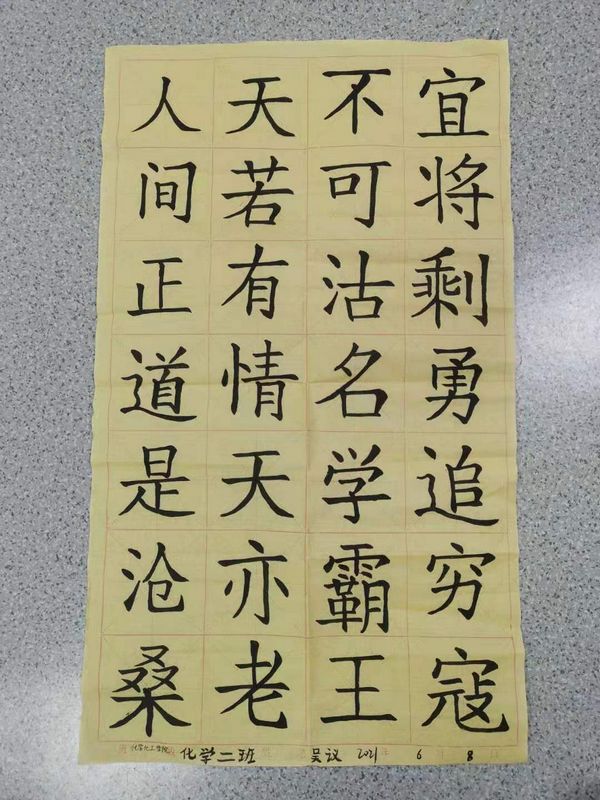 宜将剩勇追穷寇
不可沽名学霸王
天若有情天亦老
人间正道是沧桑
化学化工学院 化学二班 吴议 2021年6月8日